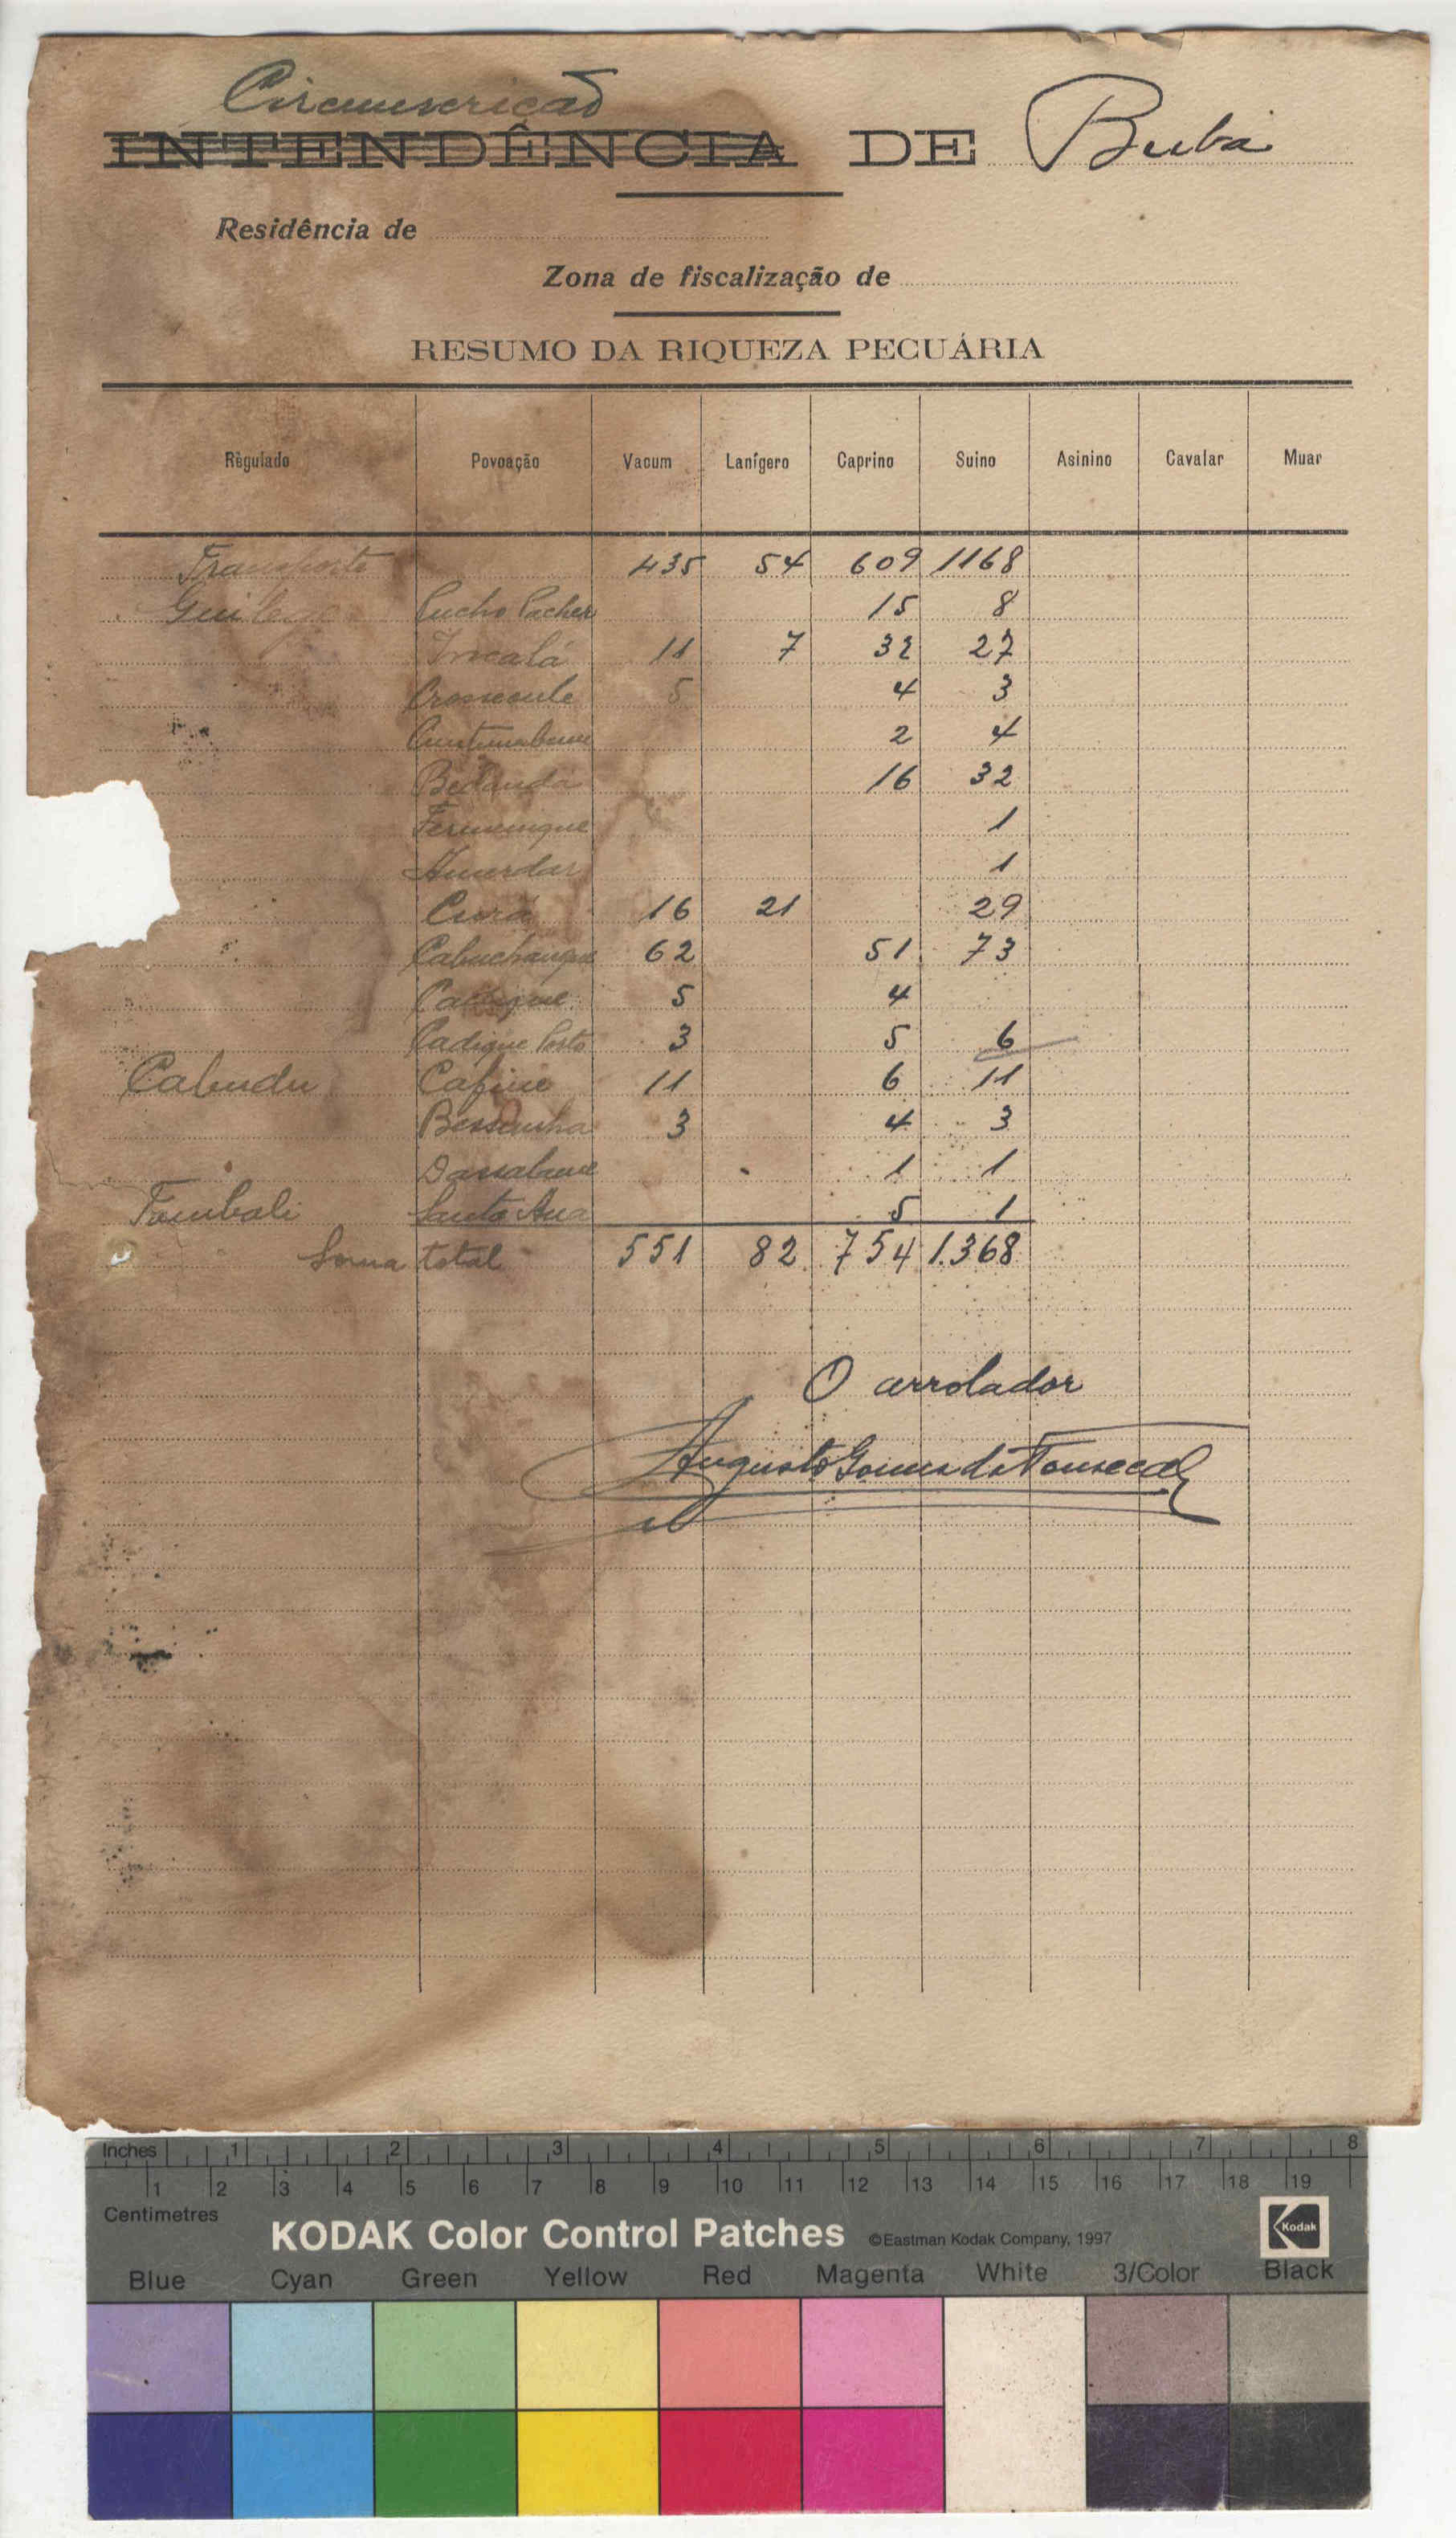 Circunscrição
INTENDÊNCIA DE Buba
Residência de
Zona de fiscalização de
RESUMO DA RIQUEZA PECUÁRIA
Règulado Povoação Vacum Lanígero Caprino Suino Asinino Cavalar Muar
Transporte 435 54 609 1168
Guileje 15 8
11 7 32 27
5 4 3
2 4
Bedanda 16 32
1
1
16 21 29
Cabuchanque 62 51 73
5 4
Cadique Porto 3 5 6
Cabudu Cafine 11 6 11
3 4 3
1 1
Tombali Santa Ana 5 1
Soma total 551 82 754 1.368
O arrolador
Augusto Gomes da Fonseca
Inches 1 2 3 4 5 6 7 8
1 2 3 4 5 6 7 8 9 10 11 12 13 14 15 16 17 18 19
Centimetres
KODAK Color Control Patches ©Eastman Kodak Company, 1997 Kodak
Blue Cyan Green Yellow Red Magenta White 3/Color Black